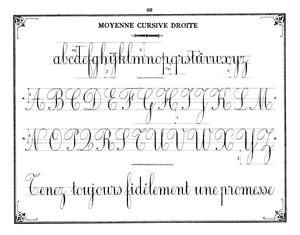 22
MOYENNE CURSIVE DROITE
abcdefghijklmnopqrstuvwxyz
ABCDEFGHIJKLM
NOPQRSTUVWXYZ
Tenez toujours fidèlement une promesse